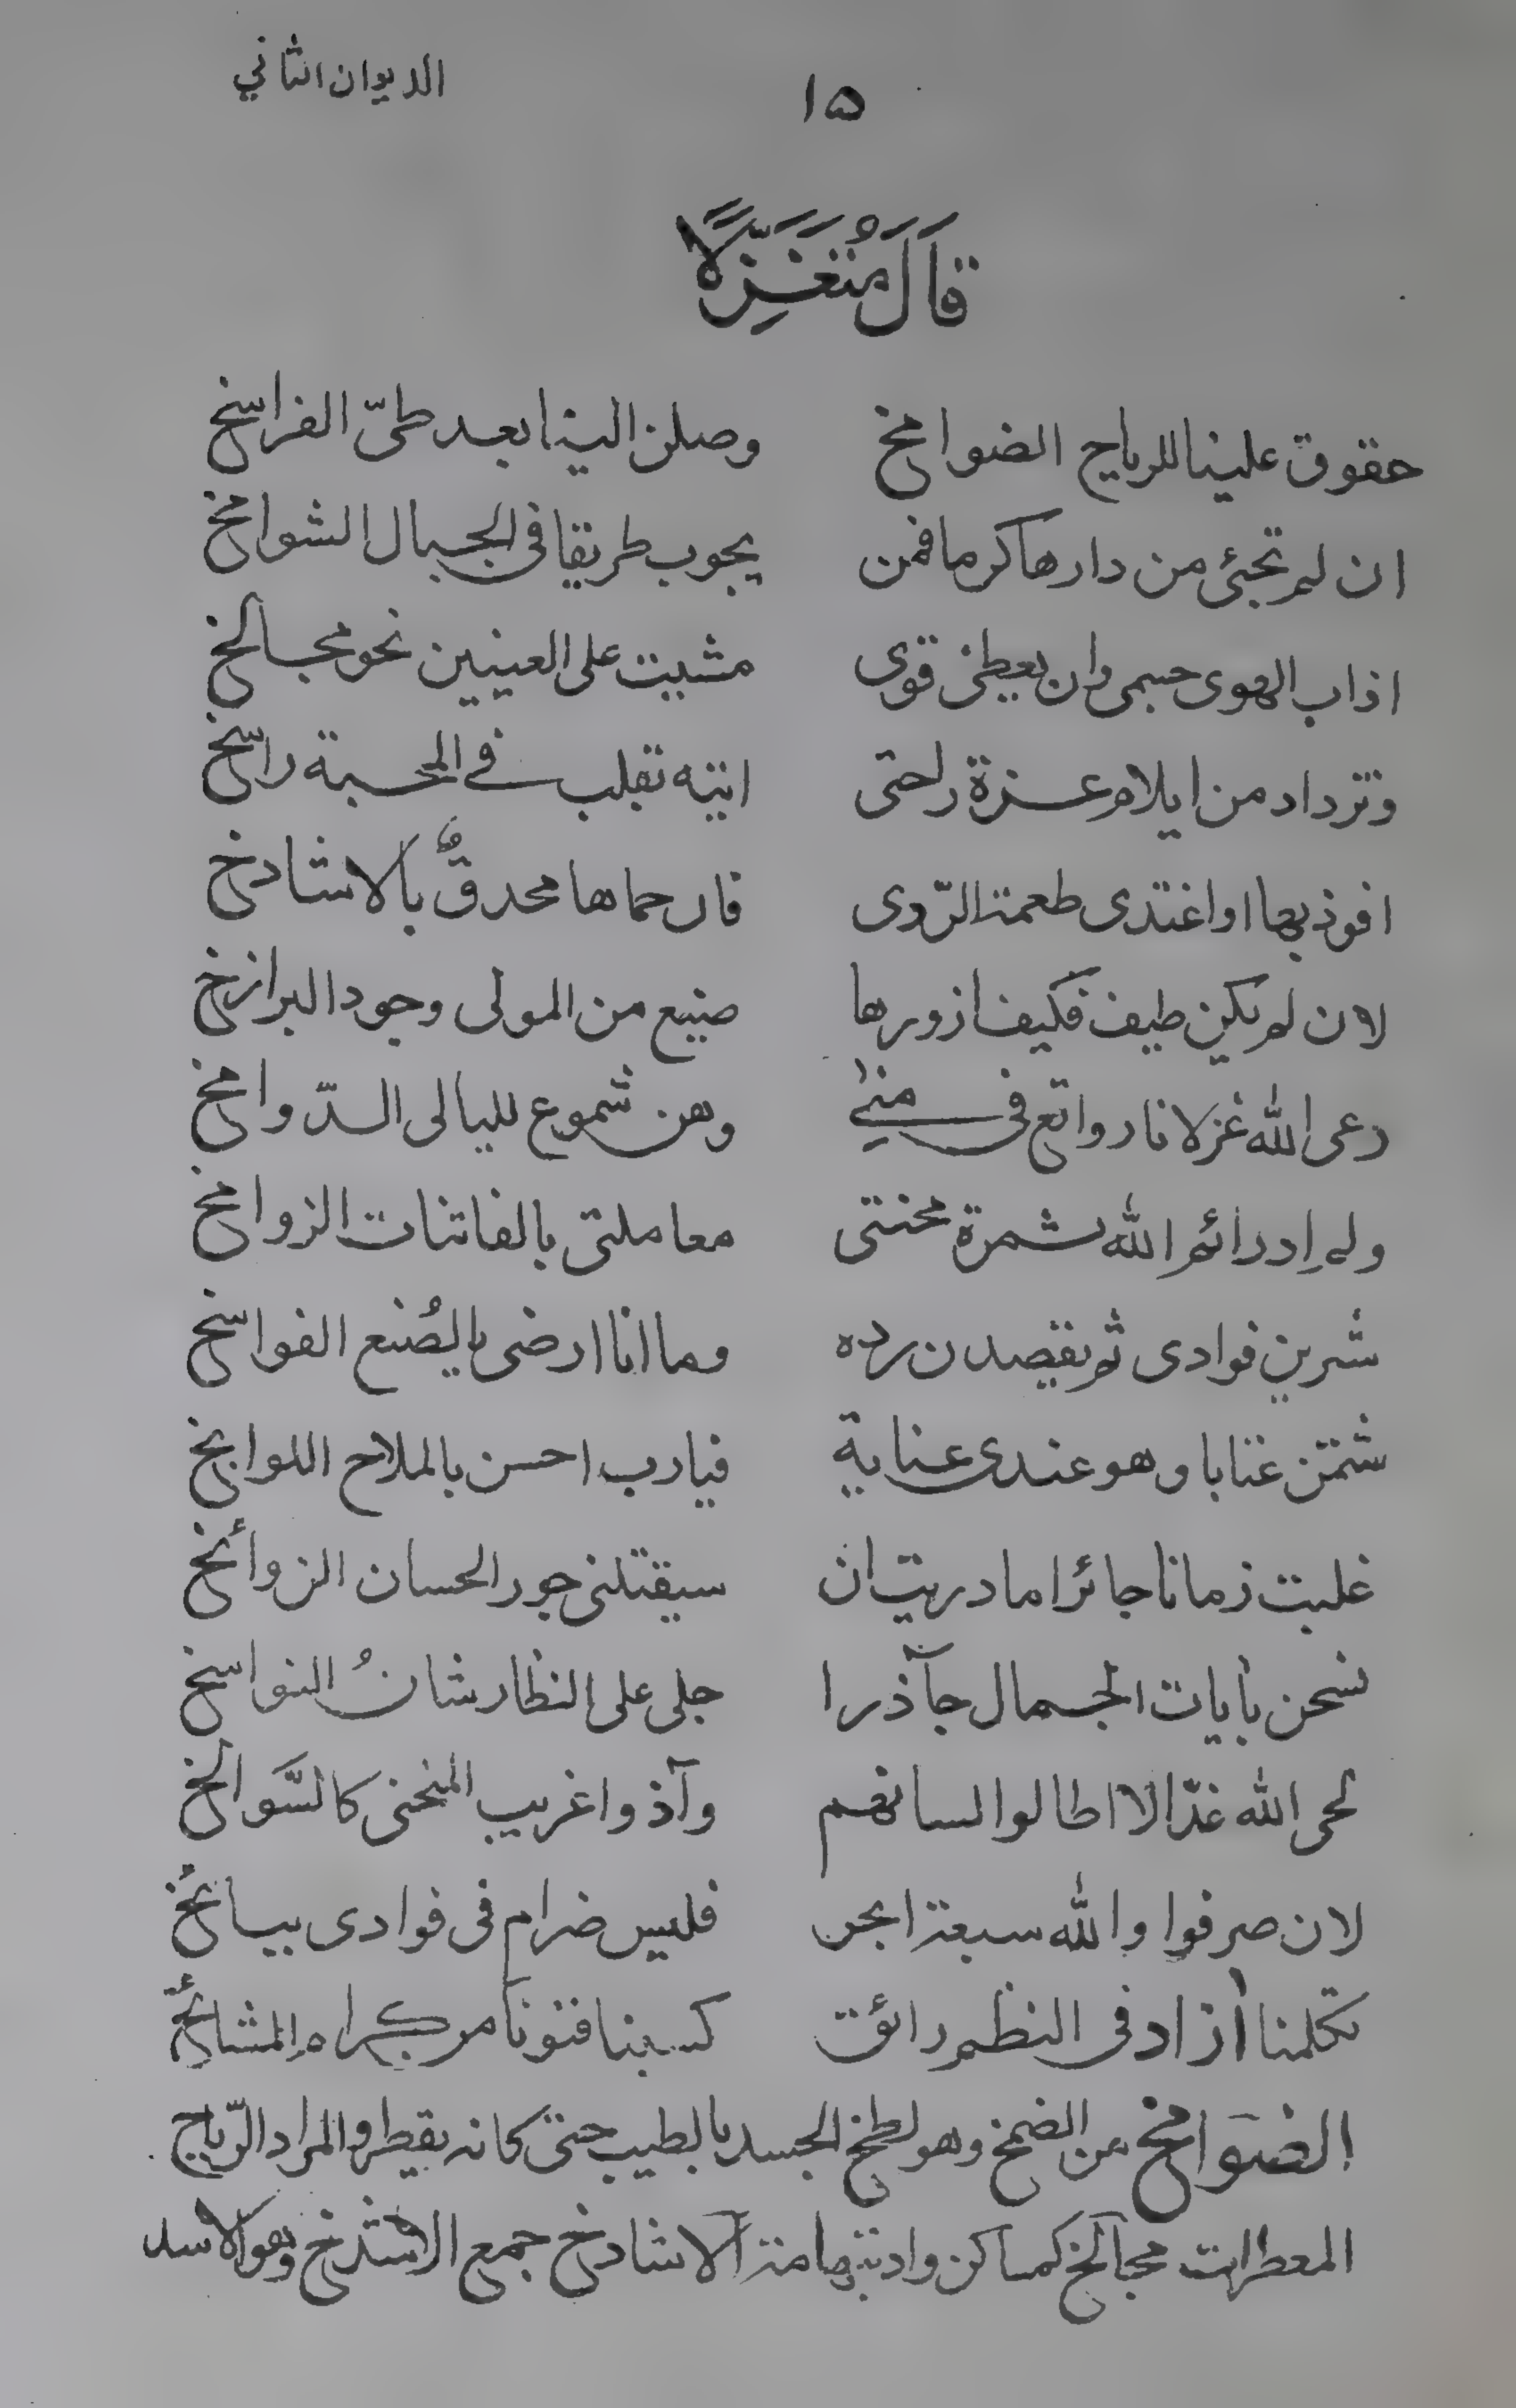 الديوان الثاني
١٥
قَالَ مُتَغَزِّلًا
حقوق علينا للرياح الضوامخ وصلن الينا بعد طىّ الفراسخ
ان لم تجئ من دارها كرما فمن يجوب طريقا فى الجبال الشوامخ
اذاب الهوى جسمى وان يعطنى قوى مشيت على العينين نحو مجالخ
وتزداد من ايلام عزة راحتى اتيه بقلب فے المحبة راسخ
افوز بها او اغتدى طعمة الرّدى فان حماها محدقٌ بالاشادخ
لان لم يكن طيف فكيف ازورها صنيع من المولى وجود البرازخ
رعى الله غزلانا رواتع فى منىٰ وهن شموع لليالى الدّوامخ
ولم ادر ائم الله ثمرة محنتى معاملتى بالفاتنات الزوامخ
شرين فوادى ثم يقصدن رده وما انا ارضى بالصُنع الفواسخ
شتمتن عتابا وهو عندى عناية فيارب احسن بالملاح اللوابخ
غلبت زمانا جائرا ما دريت ان سيقتلنى جور الحسان الزوأنخ
نسخن بأيات الجمال جآذرا جلى على النظار شانُ النواسخ
لحى الله عذّالا اطالوا لسانهم وآذوا غريب المنحنى كالسَّوالخ
لان صرفوا والله سبعة ابحر فليس ضرام فى فوادى ببائخ
تكلمنا أزاد فى النظم رائق كسبنا فنونا من كرام المشائخ
الضوَامخ من الضمخ وهو لطخ الجسد بالطيب حتى كانه يقطر والمراد الرّياح
المعطرات مجالخ كمساكن وادبتهامة الاشادخ جمع الاشدخ وهو الاسد